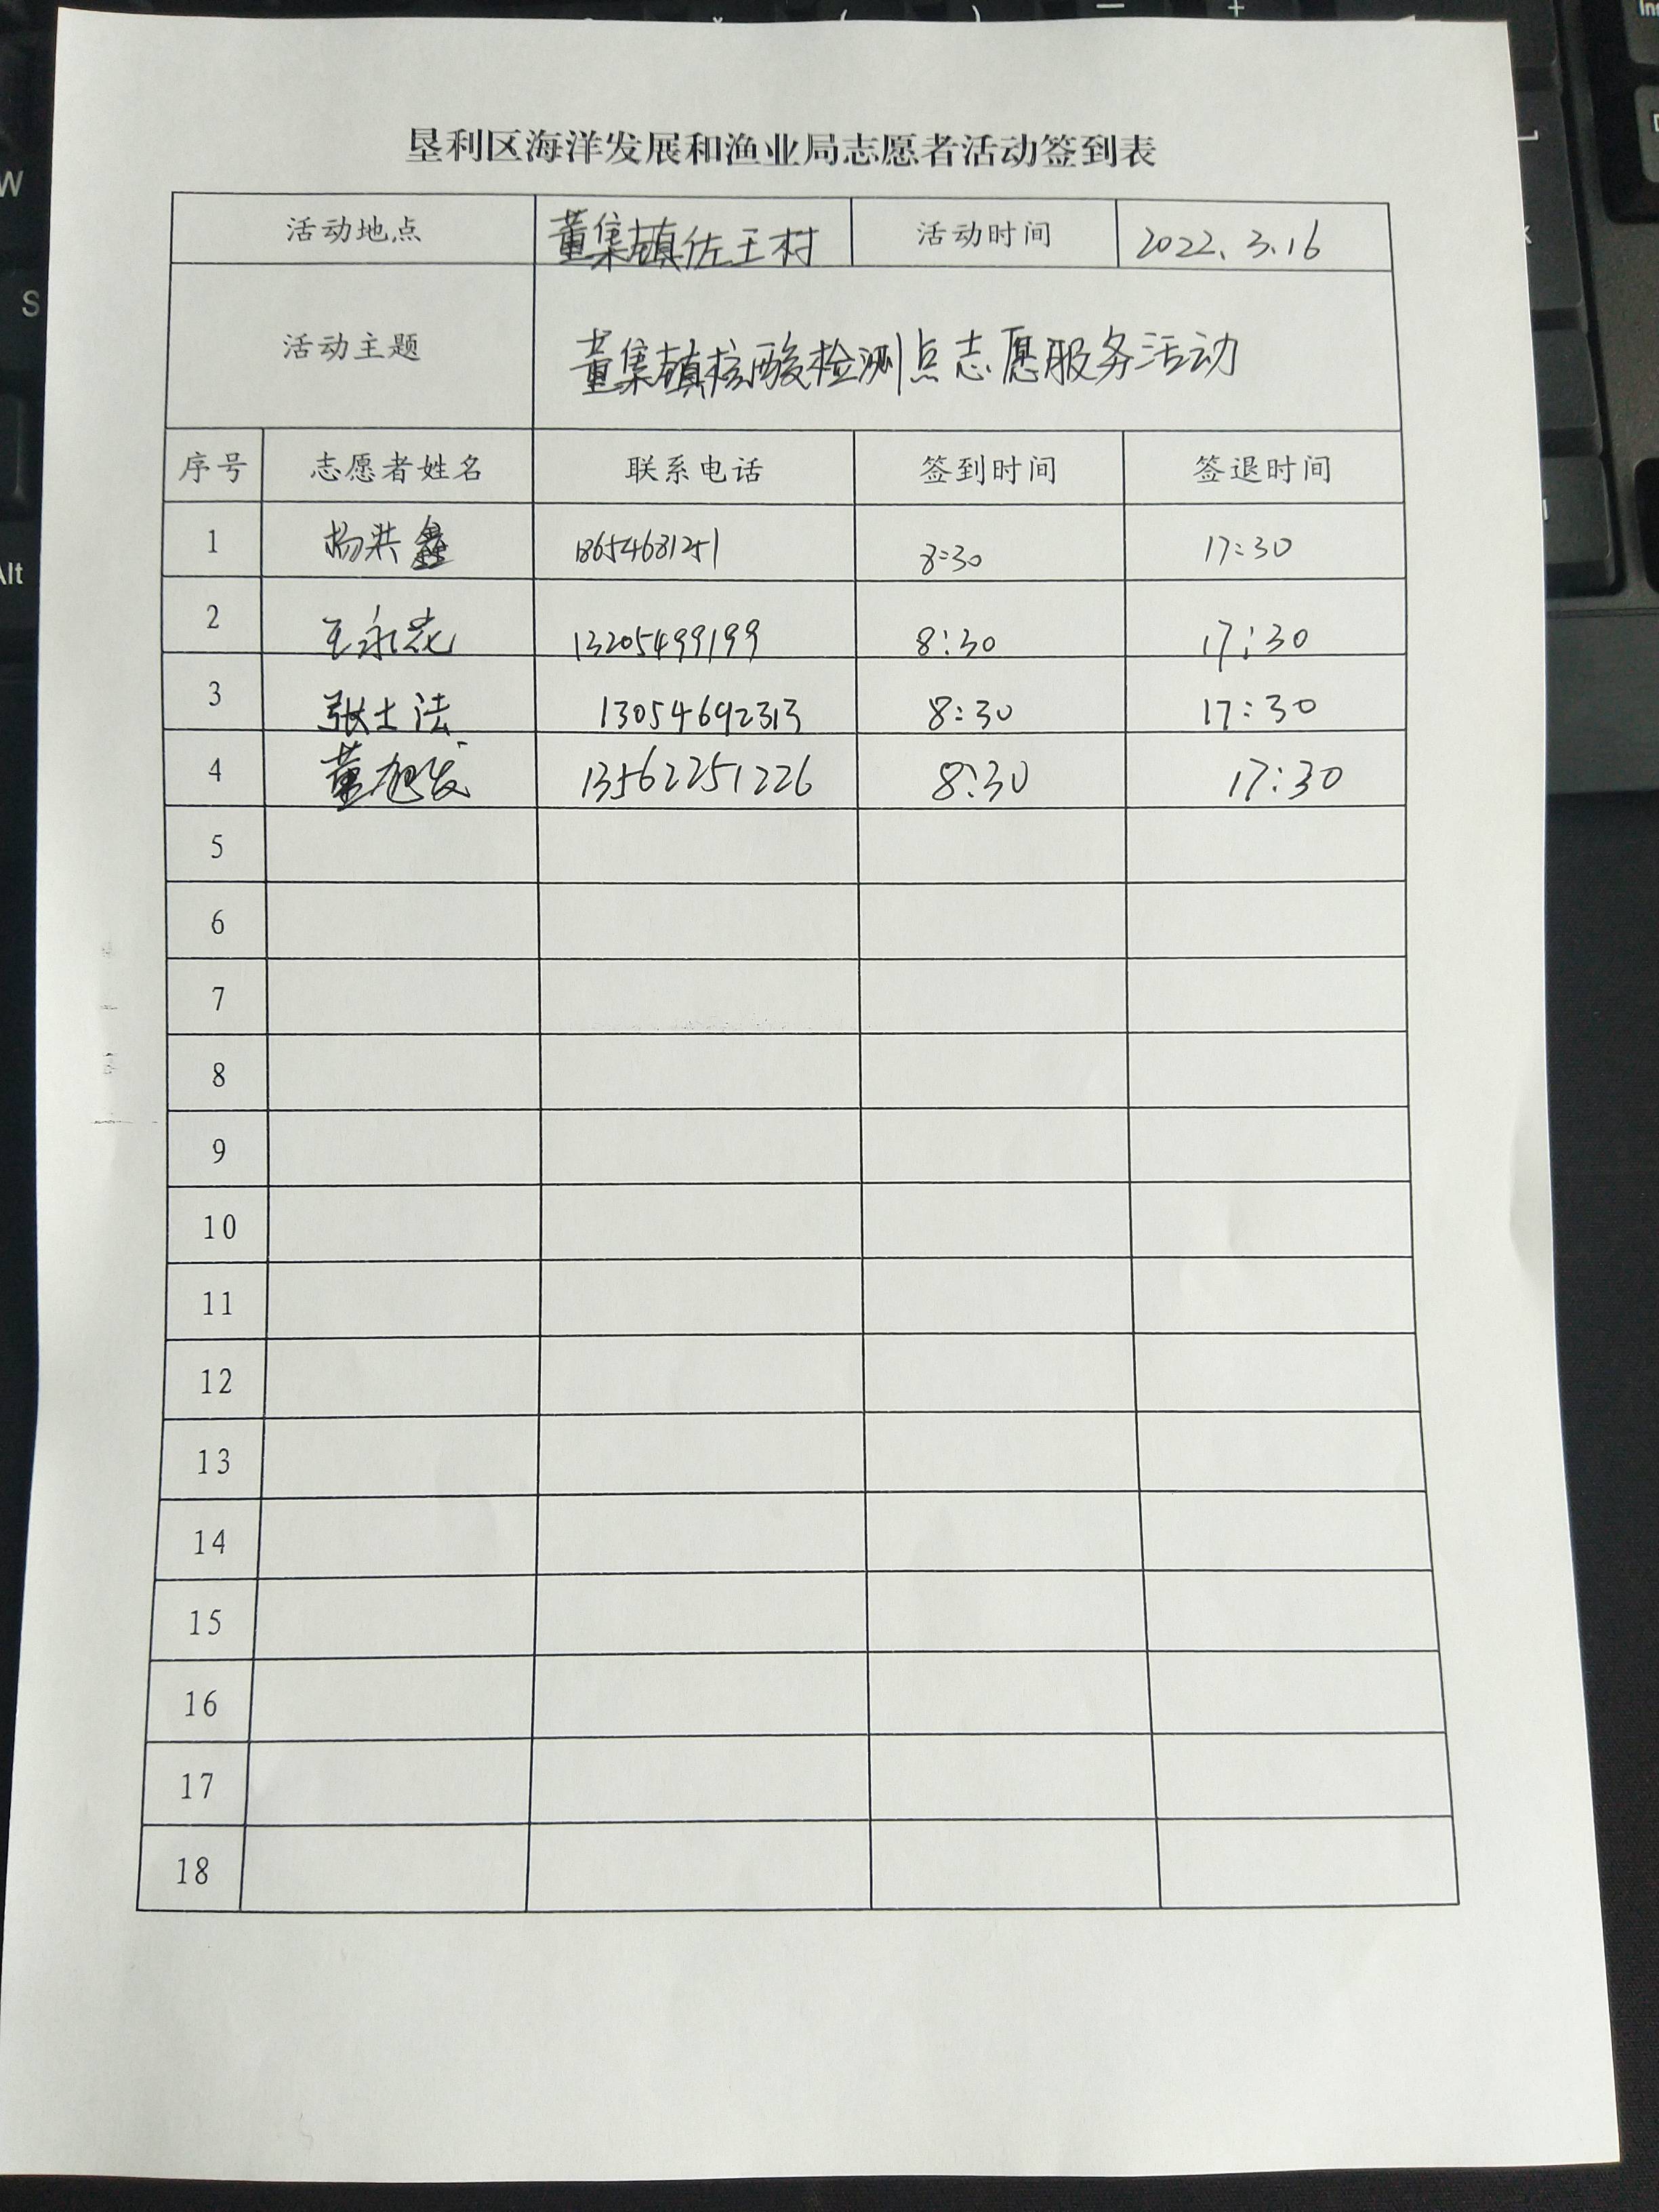 垦利区海洋发展和渔业局志愿者活动签到表
活动地点 董集镇佐王村 活动时间 2022.3.16
活动主题 董集镇核酸检测点志愿服务活动
序号 志愿者姓名 联系电话 签到时间 签退时间
1 杨洪鑫 18654681251 8:30 17:30
2 王永花 13205499199 8:30 17:30
3 张士法 13054692313 8:30 17:30
4 董旭发 13562251226 8:30 17:30
5
6
7
8
9
10
11
12
13
14
15
16
17
18